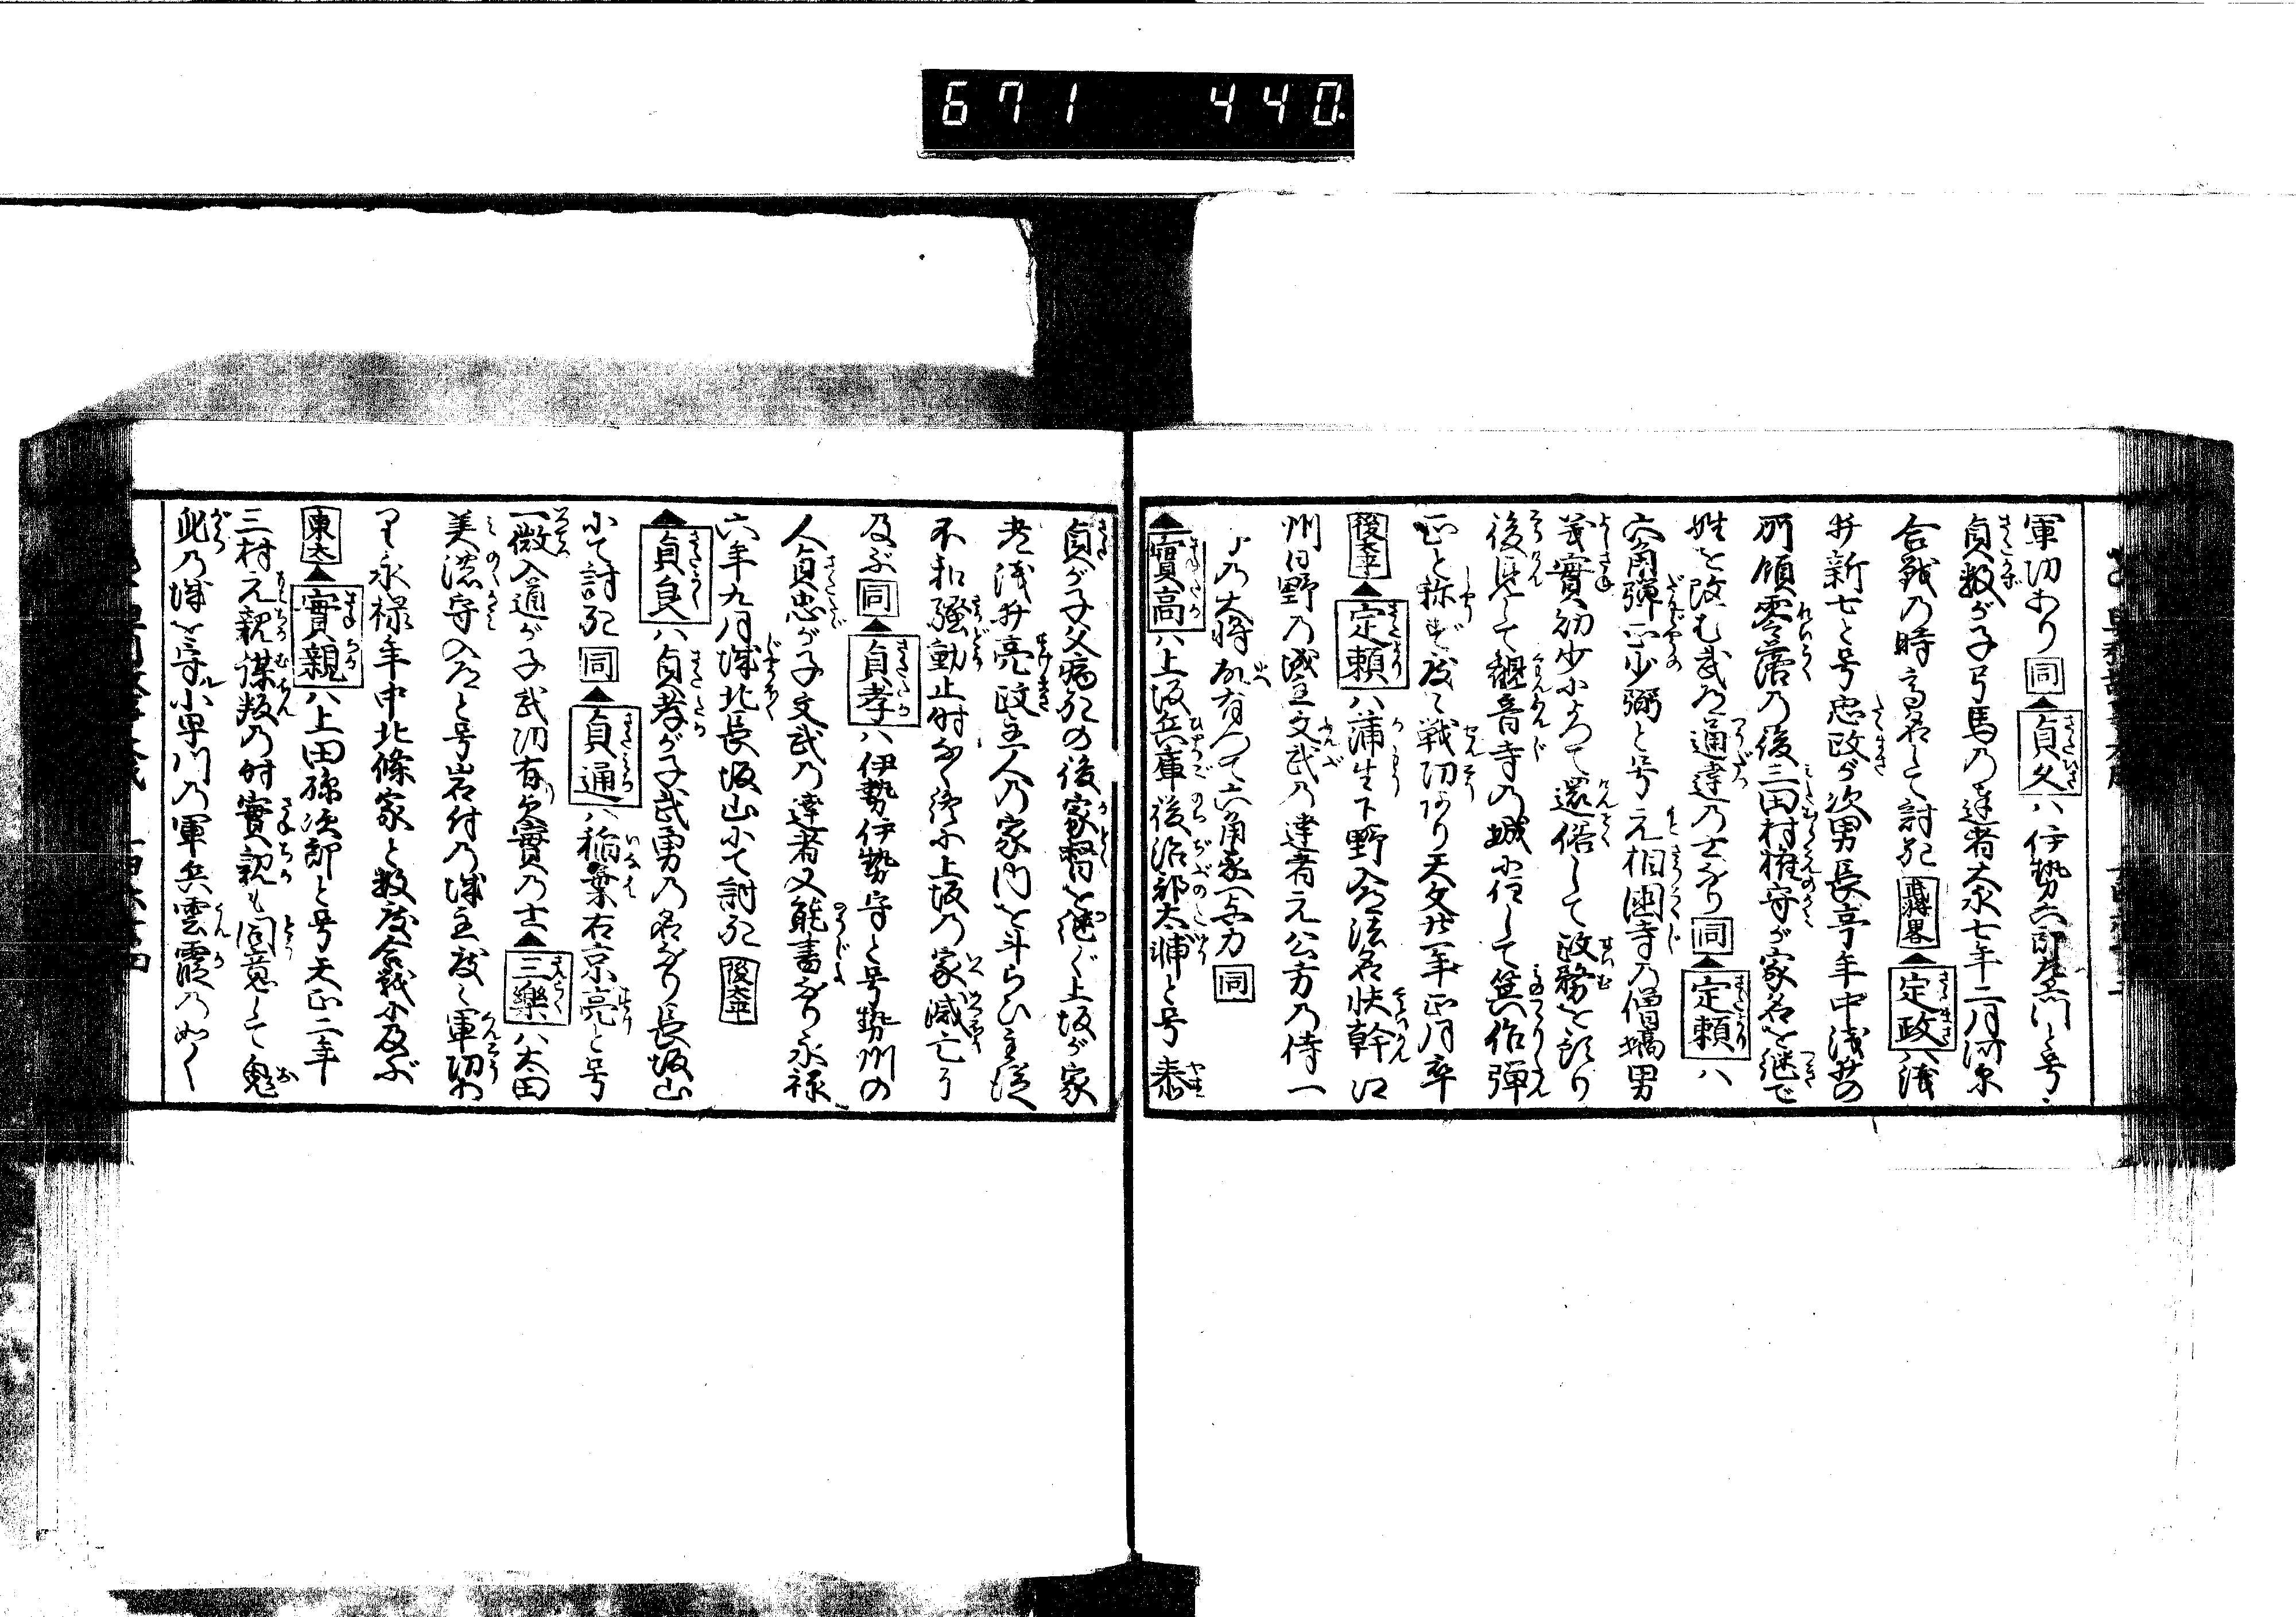 671 440.
軍功あり 同 ▲貞久ハ伊勢六郎左衛門と号
貞数が子弓馬の達者大永七年二月
合戦の時高名して討死 ▲定政ハ浅
井新七と号忠政が次男長亨年中浅井の
所領零落の後三田村権守が家名を継で
姓を改む武道通達の士なり 同 ▲定頼ハ
六角弾正少弼と号元相國寺の僧
義實幼少によつて還俗して政務を
後見して観音寺の城に住して箕作弾
正と称ず度々戦功あり天文廿一年正月卒
後太平 ▲定頼ハ蒲生下野入道法名快幹江
州日野の城主文武の達者元公方の侍一
の大将 有つて六角家与力 同
▲實高ハ上坂兵庫後治部太輔と号 泰
貞が子父病死の後家督を継ぐ上坂が家
老浅井亮政主人の家門を斗らひ主従
不和騒動止時なく終に上坂の家滅亡
及ぶ 同 ▲貞孝ハ伊勢伊勢守と号勢州の
人貞忠が子文武の達者又能書なり永禄
六年九月城北長坂山にて討死 後太平
▲貞良ハ貞孝が子武勇の名あり長坂山
にて討死 同 ▲貞通ハ稲葉右京亮と号
一徹入道が子武功有 實の士 ▲三樂ハ太田
美濃守入道と号岩付の城主度々軍功あ
り永禄年中北條家と数度合戦に及ぶ
東太 ▲實親ハ上田孫次郎と号天正二年
三村元親謀叛の時實親も同意して鬼
此の城を守ル小早川の軍兵雲霞の如く